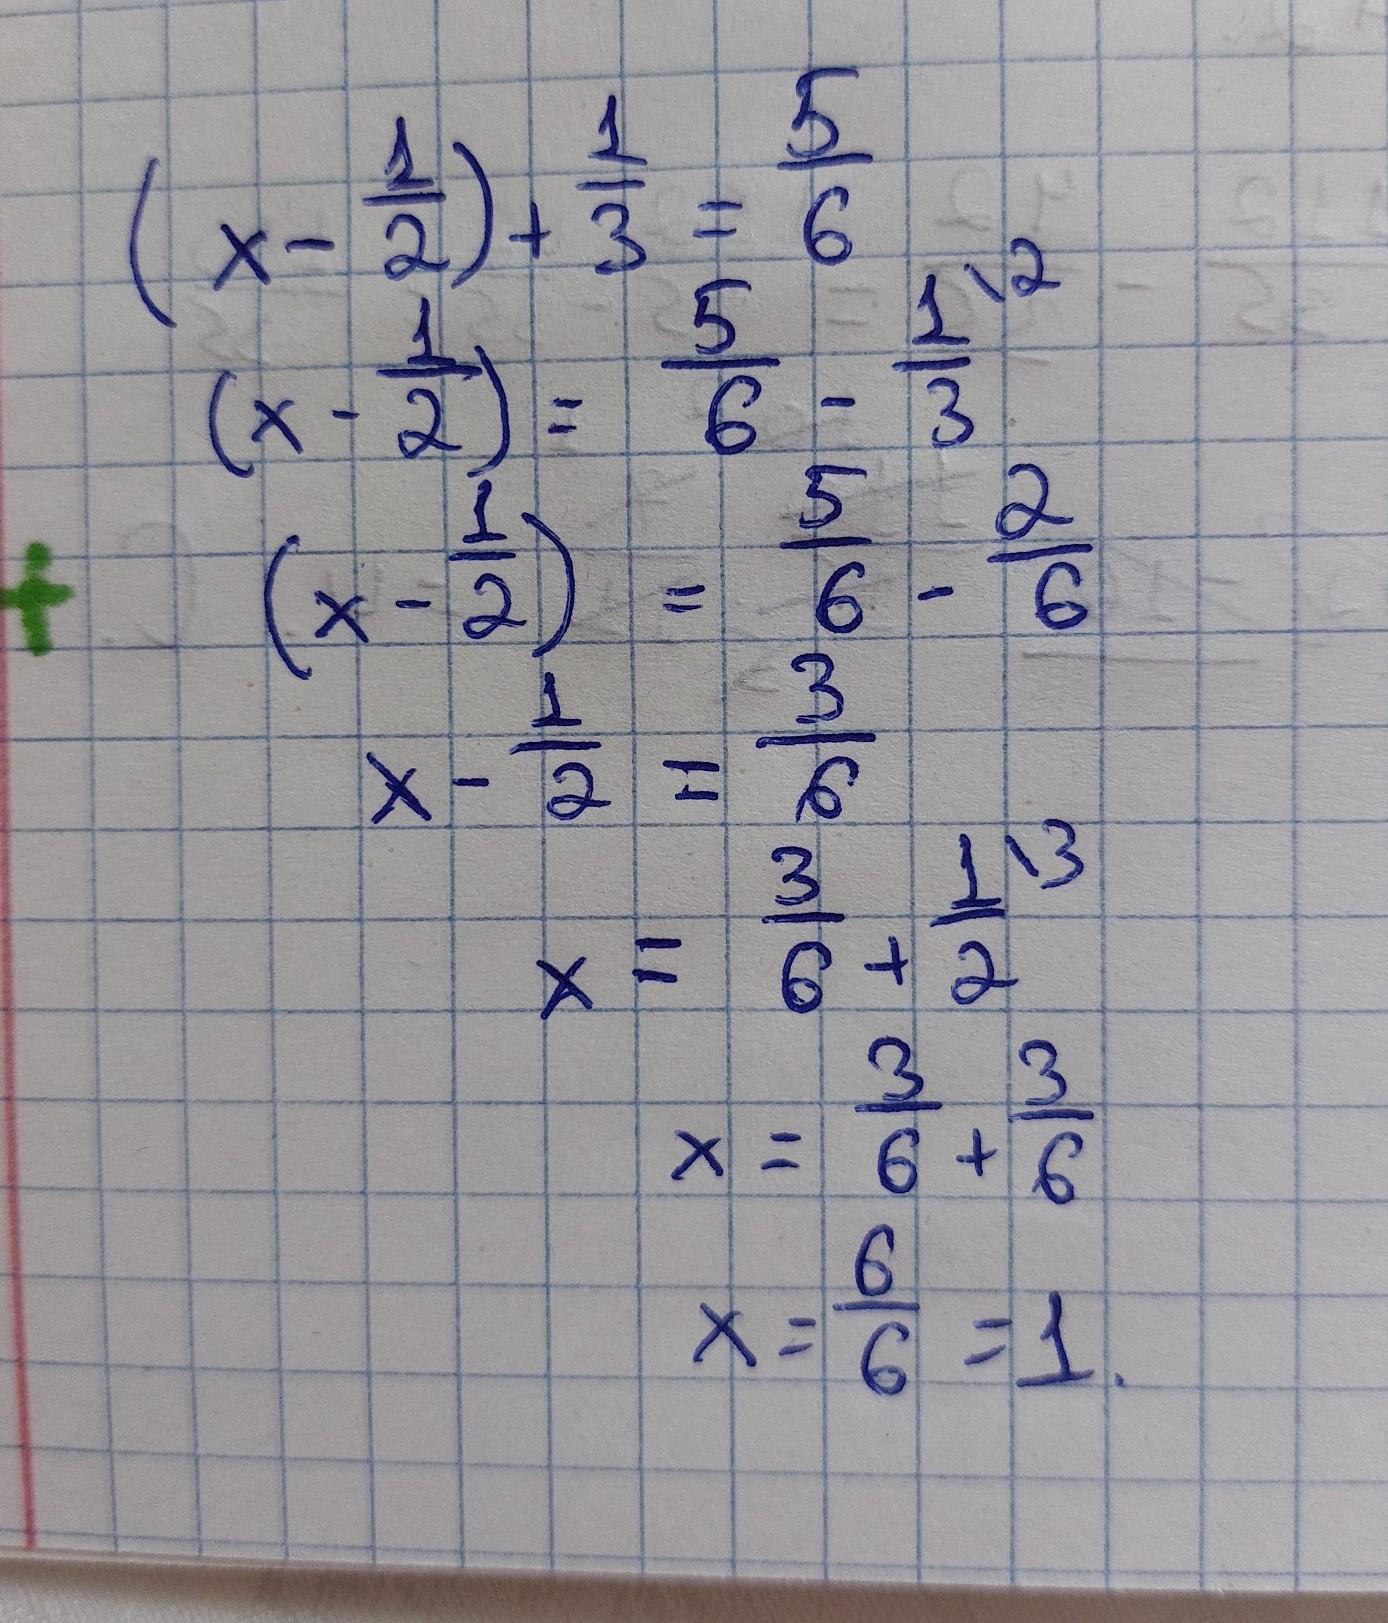 (x - 1/2) + 1/3 = 5/6
(x - 1/2) = 5/6 - 1/3 \2
(x - 1/2) = 5/6 - 2/6
x - 1/2 = 3/6
x = 3/6 + 1/2 \3
x = 3/6 + 3/6
x = 6/6 = 1.
+